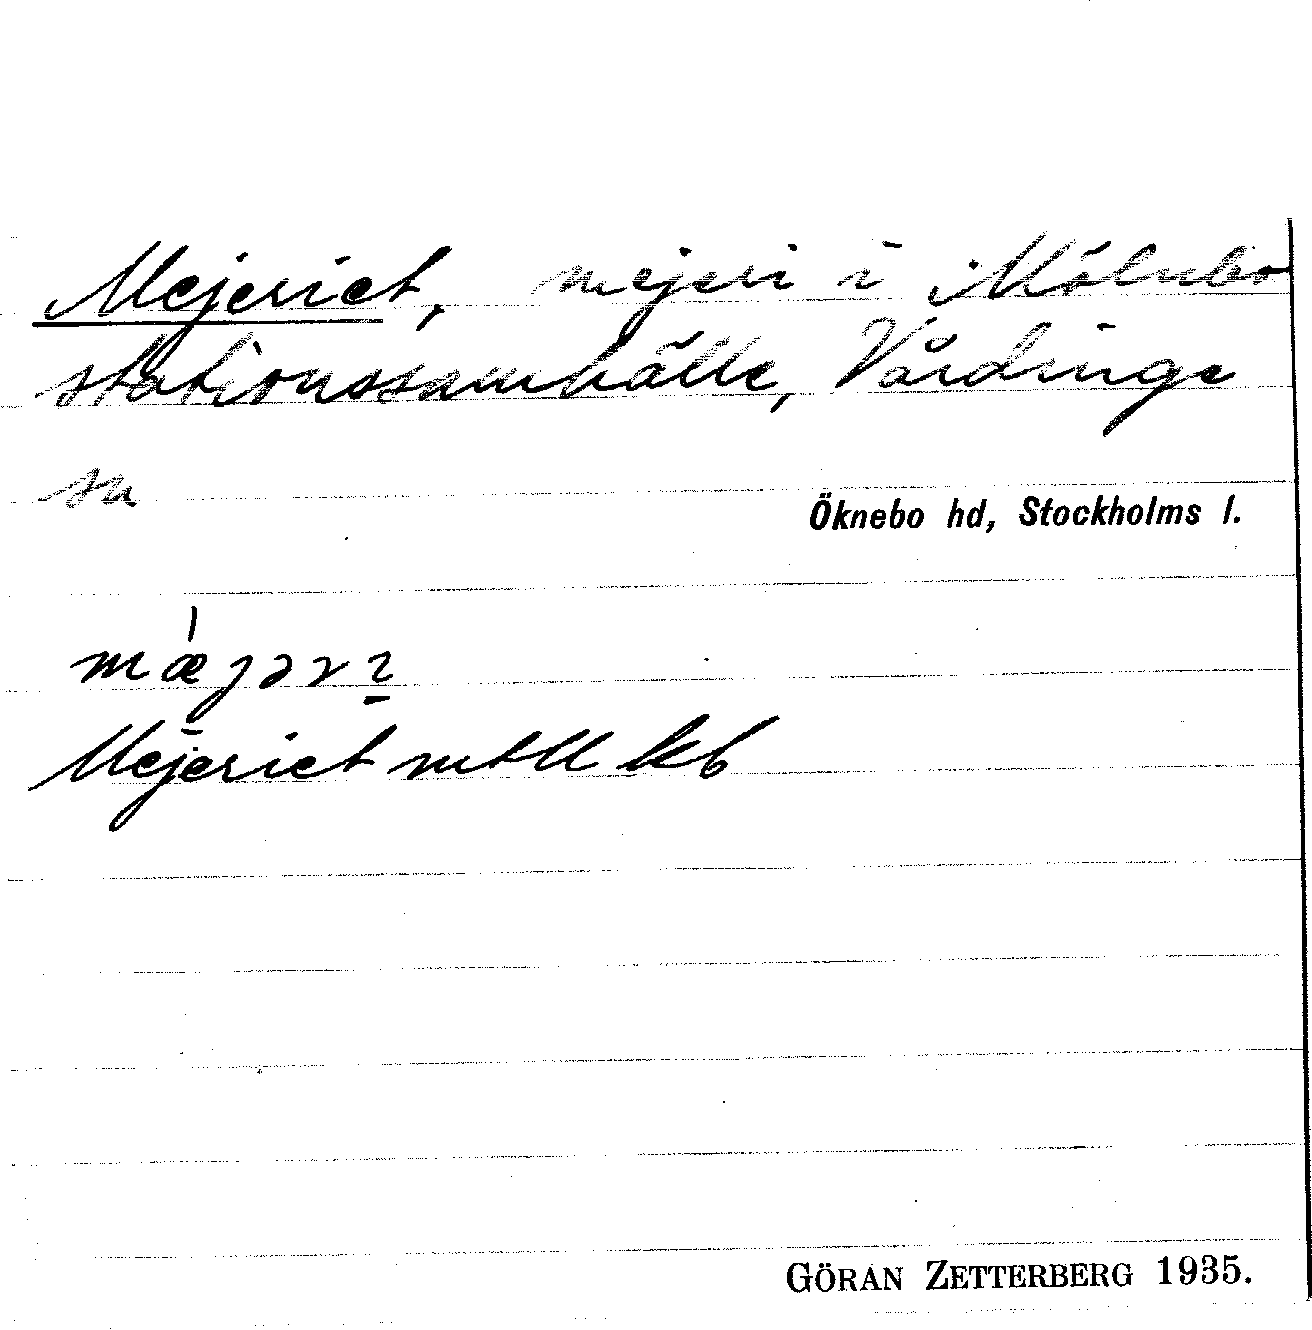 Mejeriet, mejeri i Mölnbo
stationssamhälle, Vårdinge
sn
Öknebo hd, Stockholms l.
mǽjərı̱
Mejeriet mtll kb
GÖRAN ZETTERBERG 1935.